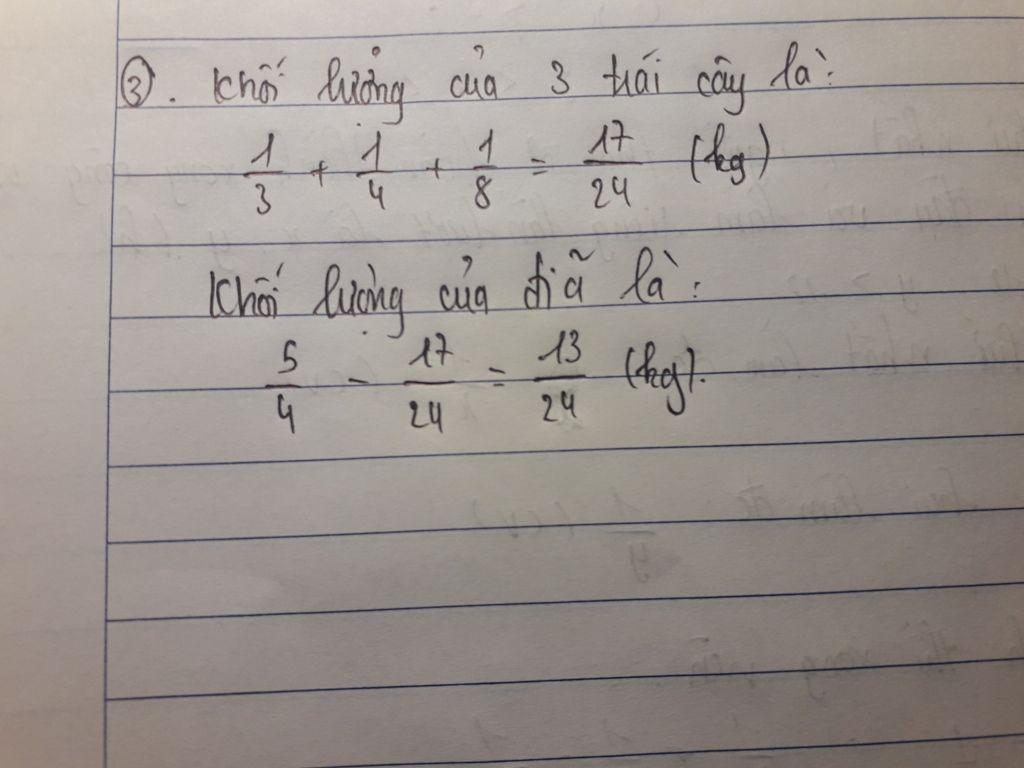 ③. Khối lượng của 3 trái cây là:
1/3 + 1/4 + 1/8 = 17/24 (kg)
Khối lượng của đĩa là:
5/4 - 17/24 = 13/24 (kg).